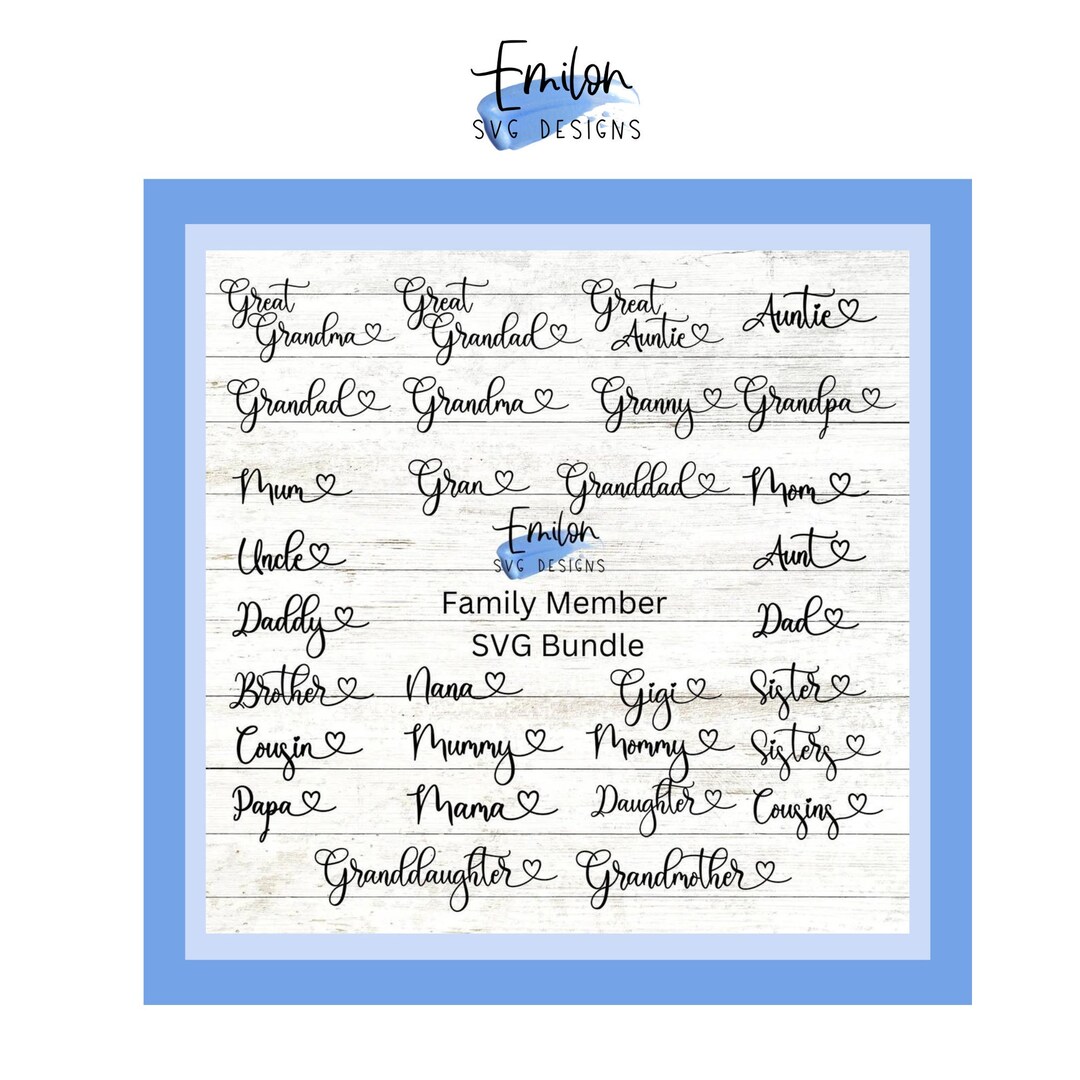 Emilon
SVG DESIGNS
Great Great Great Auntie
Grandma Grandad Auntie
Grandad Grandma Granny Grandpa
Mum Gran Granddad Mom
Emilon
SVG DESIGNS
Uncle Aunt
Family Member
Daddy Dad
SVG Bundle
Brother Nana Gigi Sister
Cousin Mummy Mommy Sisters
Papa Mama Daughter Cousins
Granddaughter Grandmother